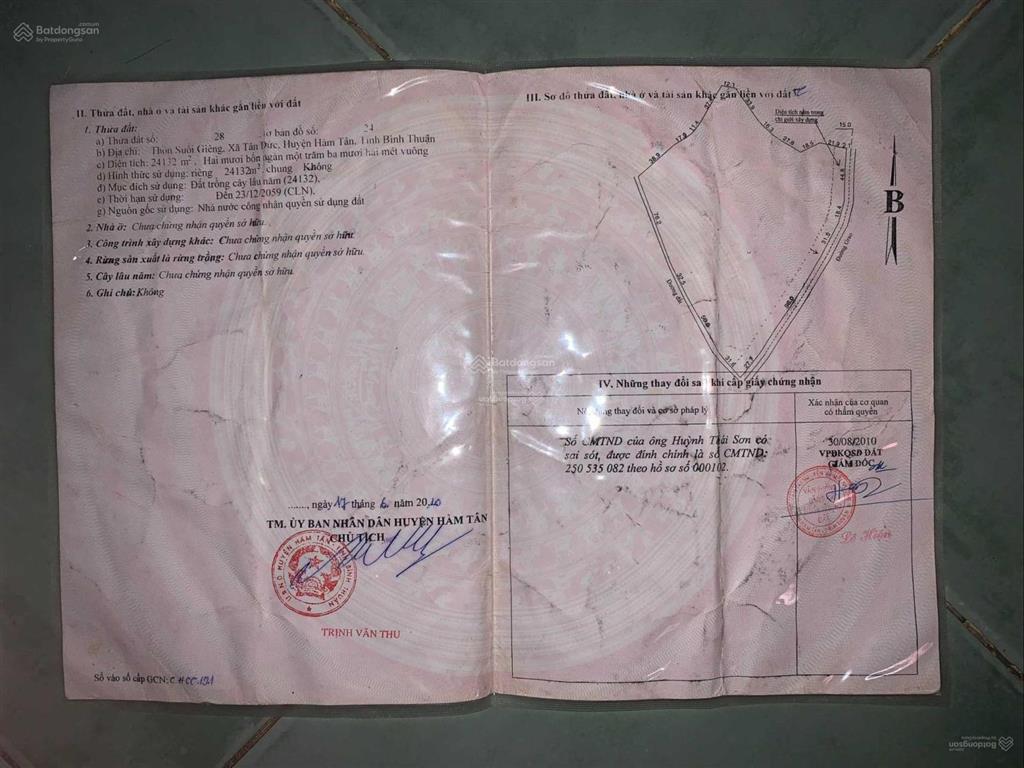 Batdongsan
.com.vn
by PropertyGuru
II. Thửa đất, nhà ở và tài sản khác gắn liền với đất
1. Thửa đất:
a) Thửa đất số: 28 tờ bản đồ số: 24
b) Địa chỉ: Thôn Suối Giêng, Xã Tân Đức, Huyện Hàm Tân, Tỉnh Bình Thuận
c) Diện tích: 24132 m², Hai mươi bốn ngàn một trăm ba mươi hai mét vuông
d) Hình thức sử dụng: riêng 24132m², chung Không
đ) Mục đích sử dụng: Đất trồng cây lâu năm (24132),
e) Thời hạn sử dụng: Đến 23/12/2059 (CLN),
g) Nguồn gốc sử dụng: Nhà nước công nhận quyền sử dụng đất
2. Nhà ở: Chưa chứng nhận quyền sở hữu.
3. Công trình xây dựng khác: Chưa chứng nhận quyền sở hữu.
4. Rừng sản xuất là rừng trồng: Chưa chứng nhận quyền sở hữu.
5. Cây lâu năm: Chưa chứng nhận quyền sở hữu.
6. Ghi chú: Không
......, ngày 17 tháng 6 năm 2010
TM. ỦY BAN NHÂN DÂN HUYỆN HÀM TÂN
CHỦ TỊCH
U.B.N.D HUYỆN HÀM TÂN
TRỊNH VĂN THU
Số vào sổ cấp GCN:
III. Sơ đồ thửa đất, nhà ở và tài sản khác gắn liền với đất
12.1
Diện tích nằm trong
chỉ giới xây dựng
15.0
17.8
11.4
16.3
27.6
18.5
21.9
2.1
38.9
44.8
76.2
18.4
31.5
B
Đường Giao
32.5
Đường Bộ
98.0
31.6
27.7
IV. Những thay đổi sau khi cấp giấy chứng nhận
Nội dung thay đổi và cơ sở pháp lý
Xác nhận của cơ quan
có thẩm quyền
Số CMTND của ông Huỳnh Thái Sơn có
sai sót, được đính chính là số CMTND:
250 535 082 theo hồ sơ số 000102.
30/08/2010
VPĐKQSD ĐẤT
GIÁM ĐỐC
Lê Hiền
Batdongsan
Batdongsan
by PropertyGuru